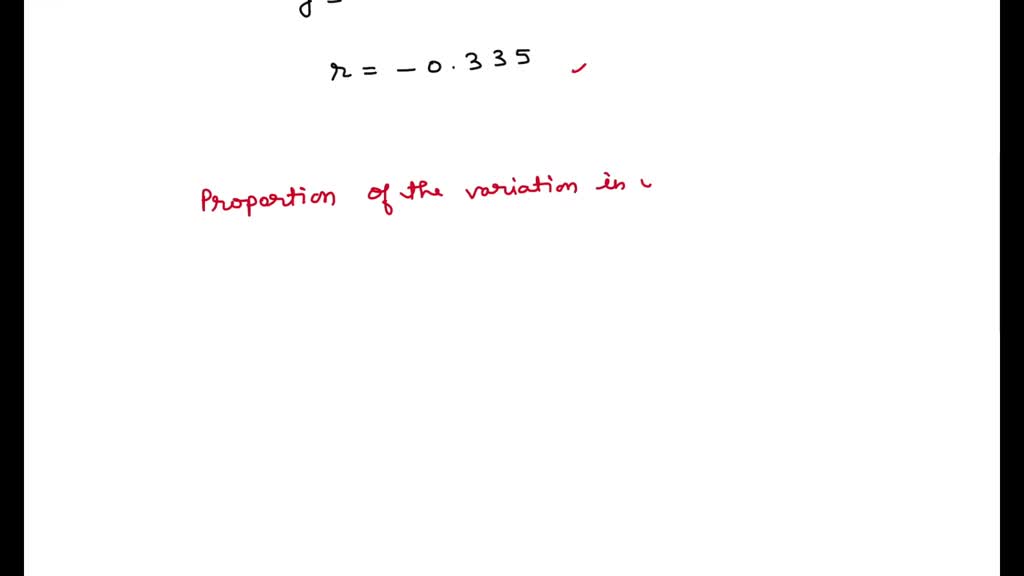 r = - 0.335
Proportion of the variation in